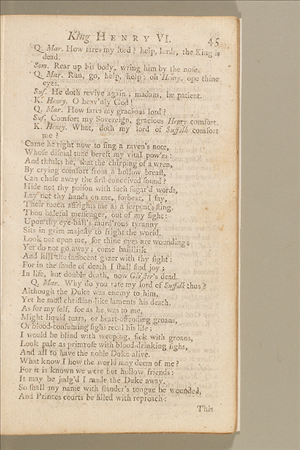 King HENRY VI. 45
Q. Mar. How fares my lord? help, lords, the King is
dead.
Som. Rear up his body, wring him by the nose.
Q. Mar. Run, go, help, help; oh Henry, ope thine
eyes.
Suf. He doth revive again; madam, be patient.
K. Henry. O heav'nly God!
Q. Mar. How fares my gracious lord?
Suf. Comfort my Sovereign, gracious Henry comfort.
K. Henry. What, doth my lord of Suffolk comfort
me?
Came he right now to sing a raven's note,
Whose dismal tune bereft my vital pow'rs:
And thinks he, that the chirping of a wren,
By crying comfort from a hollow breast,
Can chase away the first-conceived sound?
Hide not thy poison with such sugar'd words,
Lay not thy hands on me, forbear, I say,
Their touch affrights me as a serpent's sting.
Thou baleful messenger, out of my sight:
Upon thy eye-balls murd'rous tyranny
Sits in grim majesty to fright the world.
Look not upon me, for thine eyes are wounding;
Yet do not go away; come basilisk,
And kill the innocent gazer with thy sight:
For in the shade of death I shall find joy;
In life, but double death, now Glo'ster's dead.
Q. Mar. Why do you rate my lord of Suffolk thus?
Although the Duke was enemy to him,
Yet he most christian-like laments his death.
As for my self, foe as he was to me,
Might liquid tears, or heart-offending groans,
Or blood-consuming sighs recal his life;
I would be blind with weeping, sick with groans,
Look pale as primrose with blood-drinking sighs,
And all to have the noble Duke alive.
What know I how the world may deem of me?
For it is known we were but hollow friends:
It may be judg'd I made the Duke away.
So shall my name with slander's tongue be wounded,
And Princes courts be fill'd with reproach:
This